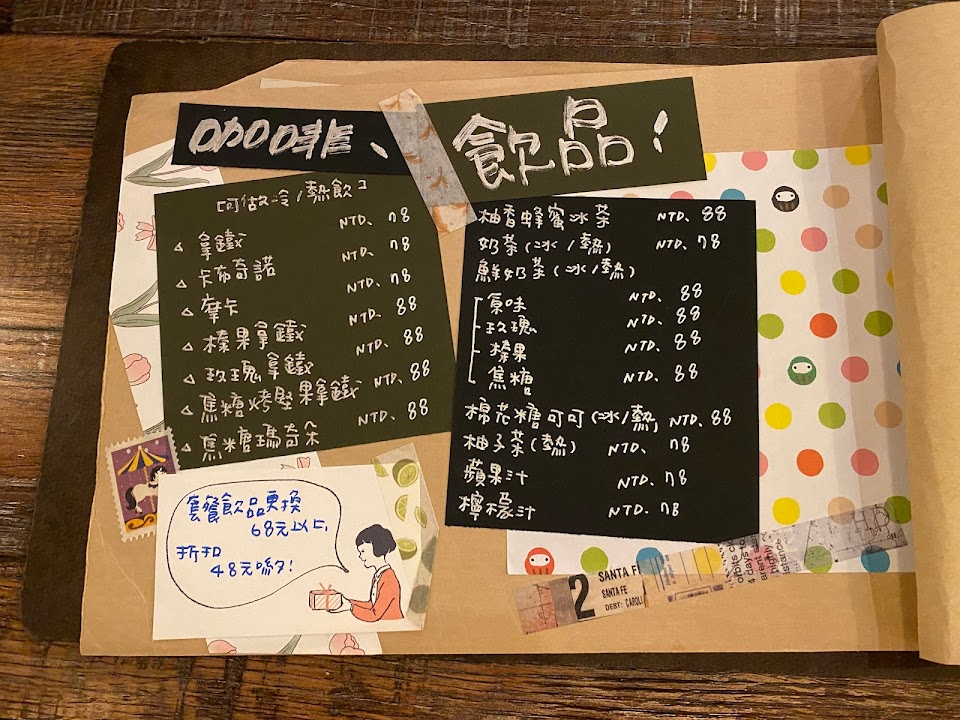 咖啡、飲品！
[可做冷/熱飲]
△ 拿鐵 NTD、78
△ 卡布奇諾 NTD、78
△ 摩卡 NTD、78
△ 榛果拿鐵 NTD、88
△ 玫瑰拿鐵 NTD、88
△ 焦糖烤堅果拿鐵 NTD、88
△ 焦糖瑪奇朵 NTD、88
柚香蜂蜜冰茶 NTD、88
奶茶(冰/熱) NTD、78
鮮奶茶(冰/熱)
原味 NTD、88
玫瑰 NTD、88
榛果 NTD、88
焦糖 NTD、88
棉花糖可可(冰/熱) NTD、88
柚子茶(熱) NTD、78
蘋果汁 NTD、78
檸檬汁 NTD、78
套餐飲品更換
68元以上,
折扣
48元喲!
2 SANTA FE
SANTA FE
DEBY: CAROLI